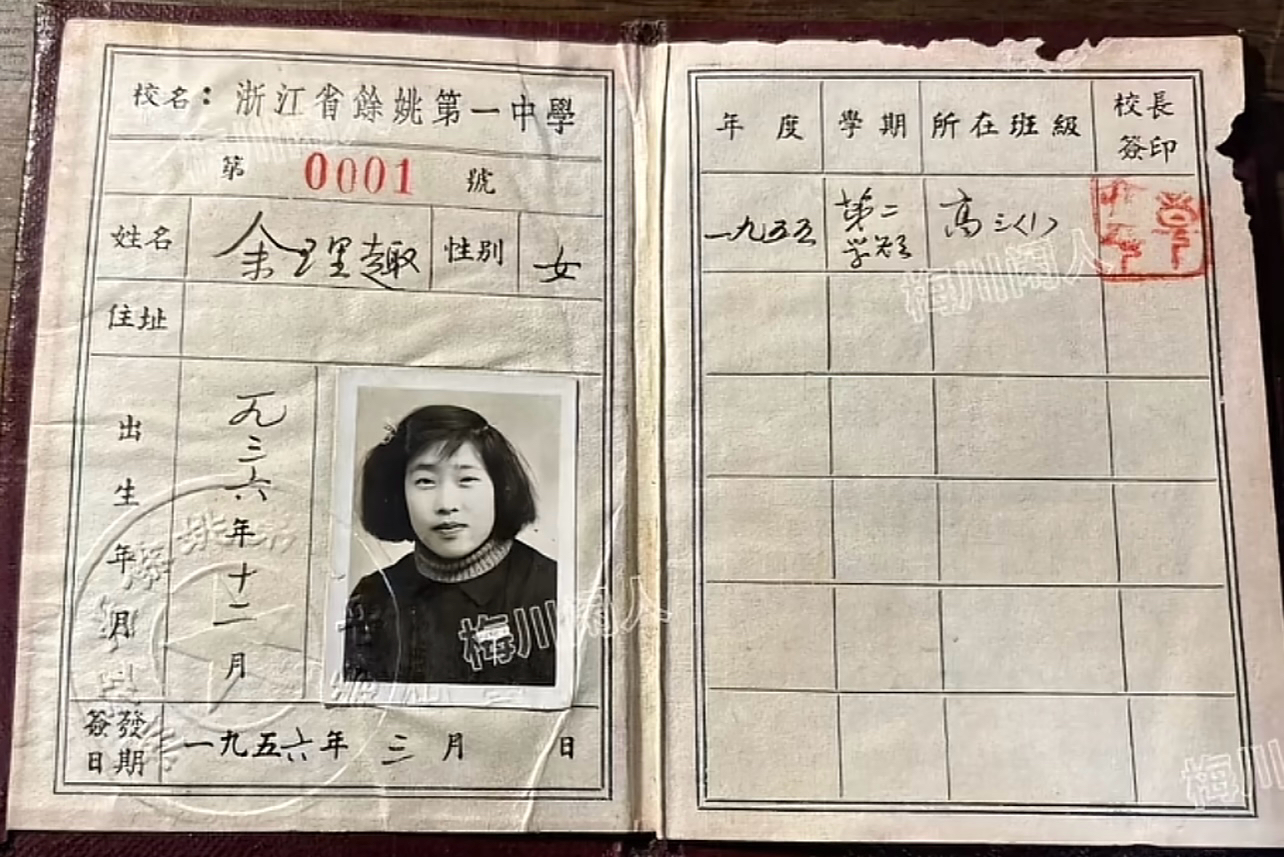 校名：浙江省餘姚第一中學
第 0001 號
姓名 余理趣 性别 女
住址
出生年月 一九三六年十二月
簽發日期 一九五六年 三月 日
年度 學期 所在班級 校長簽印
一九五五 第二学期 高三（1）
梅川闲人
梅川闲人
梅川